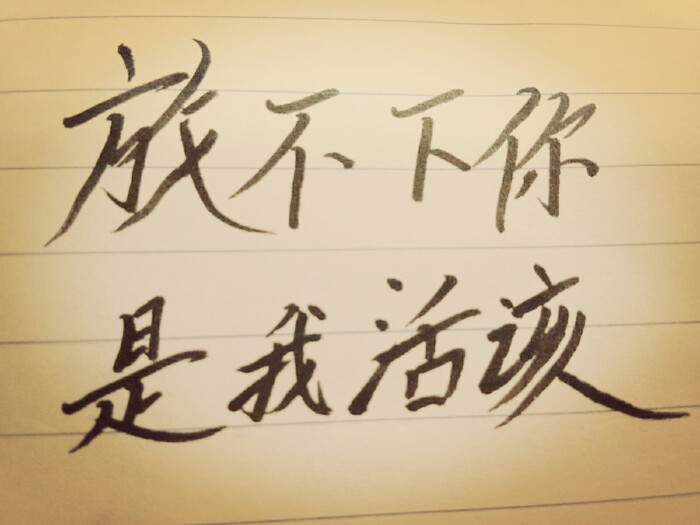 放不下你
是我活该